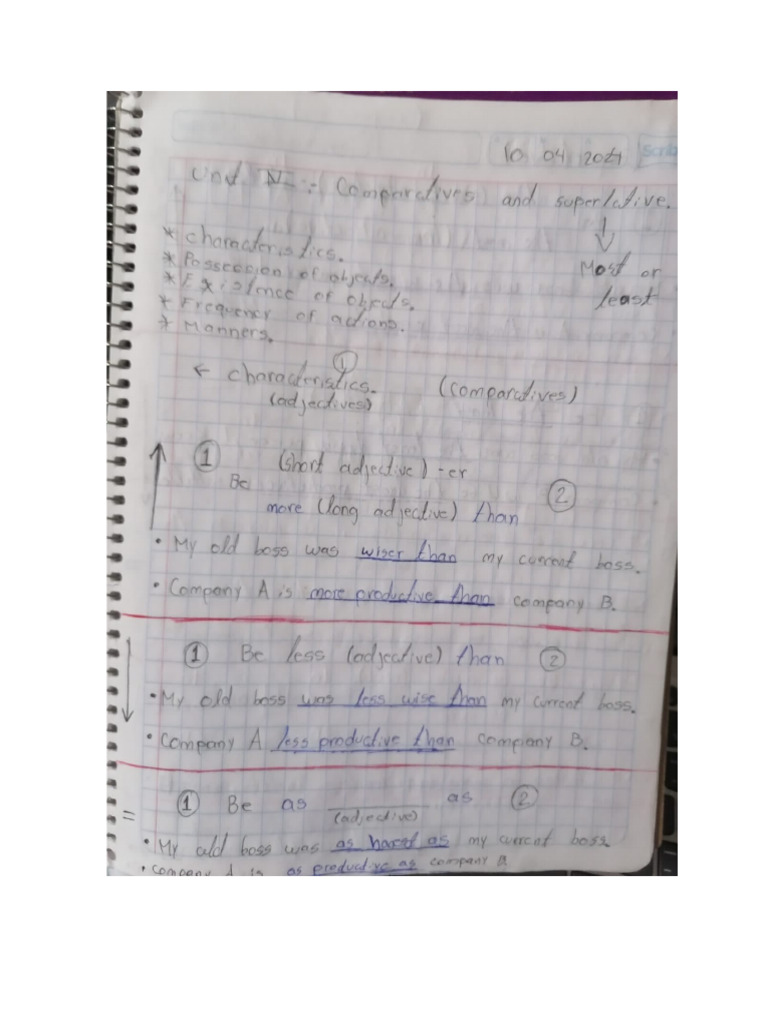 10 04 2021
Unit IV: Comparatives and superlative.
↓
Most or
least
* Characteristics.
* Possecion of objects.
* Existence of objects.
* Frequency of actions.
* Manners.
1
← characteristics. (comparatives)
(adjectives)
↑ 1 (short adjective) -er
Be 2
more (long adjective) than
• My old boss was wiser than my current boss.
• Company A is more productive than company B.
↓ 1 Be less (adjective) than 2
• My old boss was less wise than my current boss.
• Company A less productive than company B.
= 1 Be as ______ as 2
(adjective)
• My old boss was as as my current boss
• Company A is as productive as company B